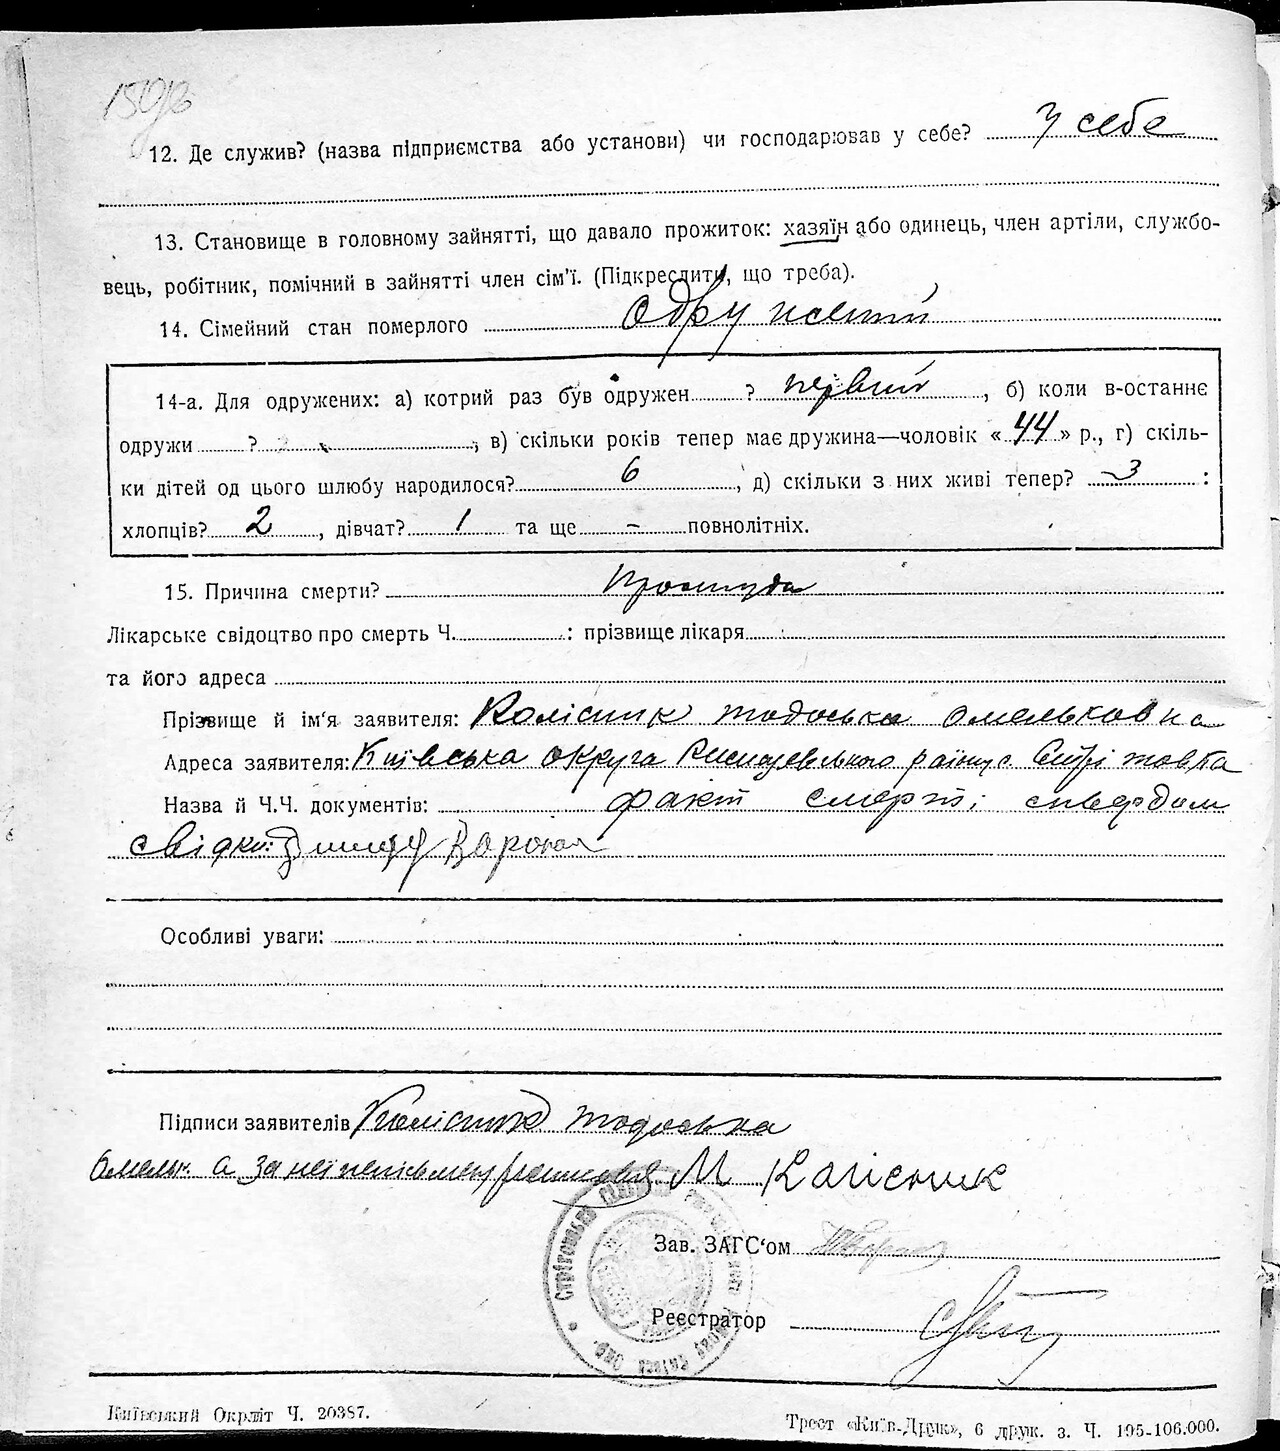 12. Де служив? (назва підприємства або установи) чи господарював у себе? у себе
13. Становище в головному зайнятті, що давало прожиток: хазяїн або одинець, член артіли, службо-
вець, робітник, помічний в зайнятті член сім'ї. (Підкреслити, що треба).
14. Сімейний стан померлого одружений
14-а. Для одружених: а) котрий раз був одружен ? первий, б) коли в-останнє
одружи ? , в) скільки років тепер має дружина—чоловік «44» р., г) скіль-
ки дітей од цього шлюбу народилося? 6, д) скільки з них живі тепер? 3 :
хлопців? 2, дівчат? 1 та ще – повнолітніх.
15. Причина смерти? простуда
Лікарське свідоцтво про смерть Ч. : прізвище лікаря
та його адреса
Прізвище й ім'я заявителя: Колісник тодоська омельковна
Адреса заявителя: Київська округа района с.
Назва й Ч.Ч. документів: факт смерті
свідки:
Особливі уваги:
Підписи заявителів Колісник тодоська
Омельк. а за неї М Колісник
Зав. ЗАГС'ом
Реєстратор
Київський Окрліт Ч. 20387.
Трест «Київ-Друк», 6 друк. з. Ч. 195-106.000.